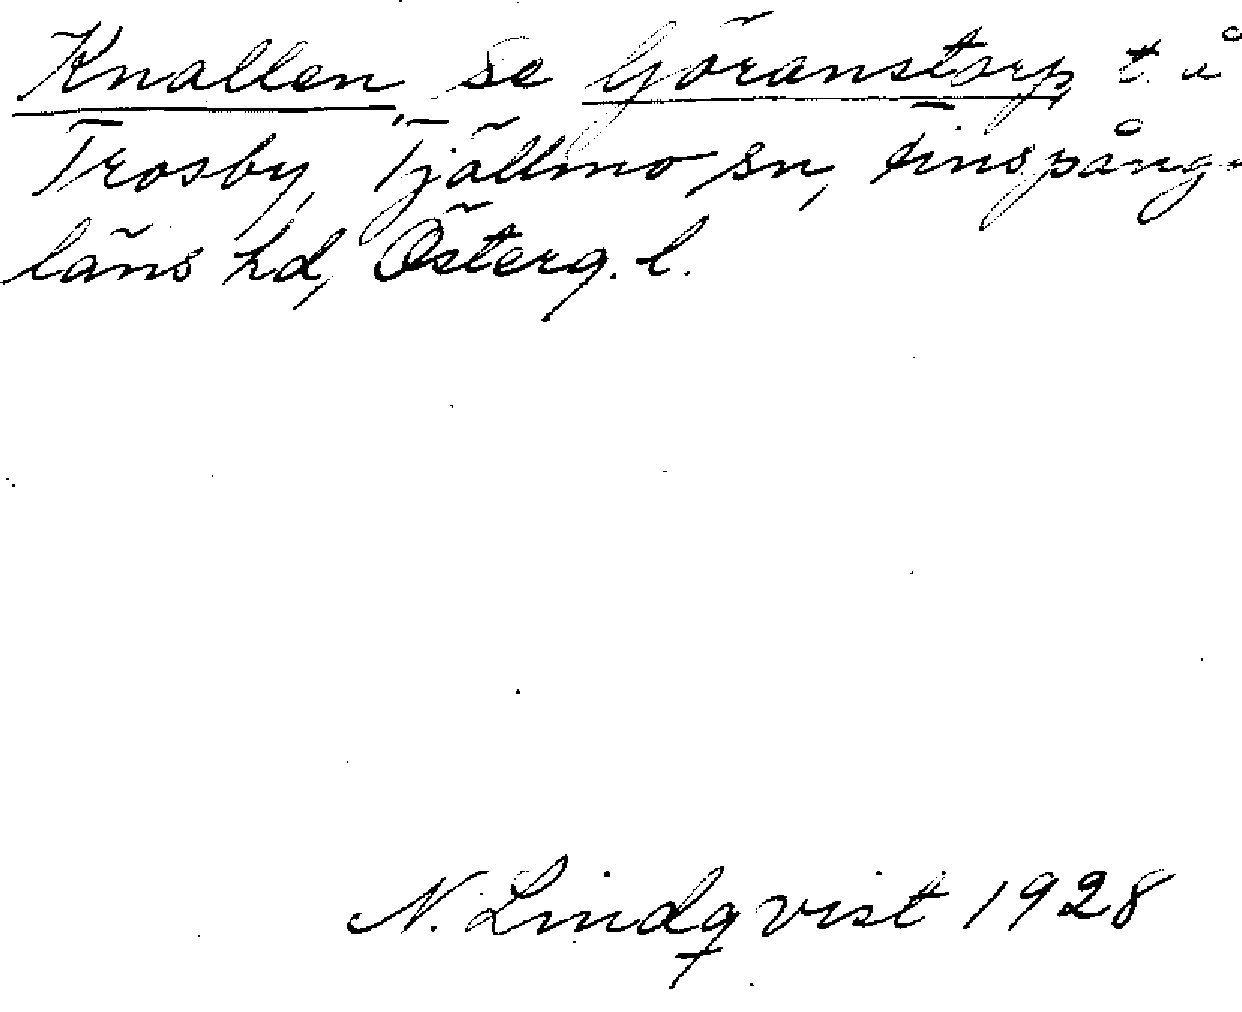 Knallen, se Göranstorp, t. å
Trosby, Tjällmo sn, Finspång-
läns hd, Österg. l.
N. Lindqvist 1928